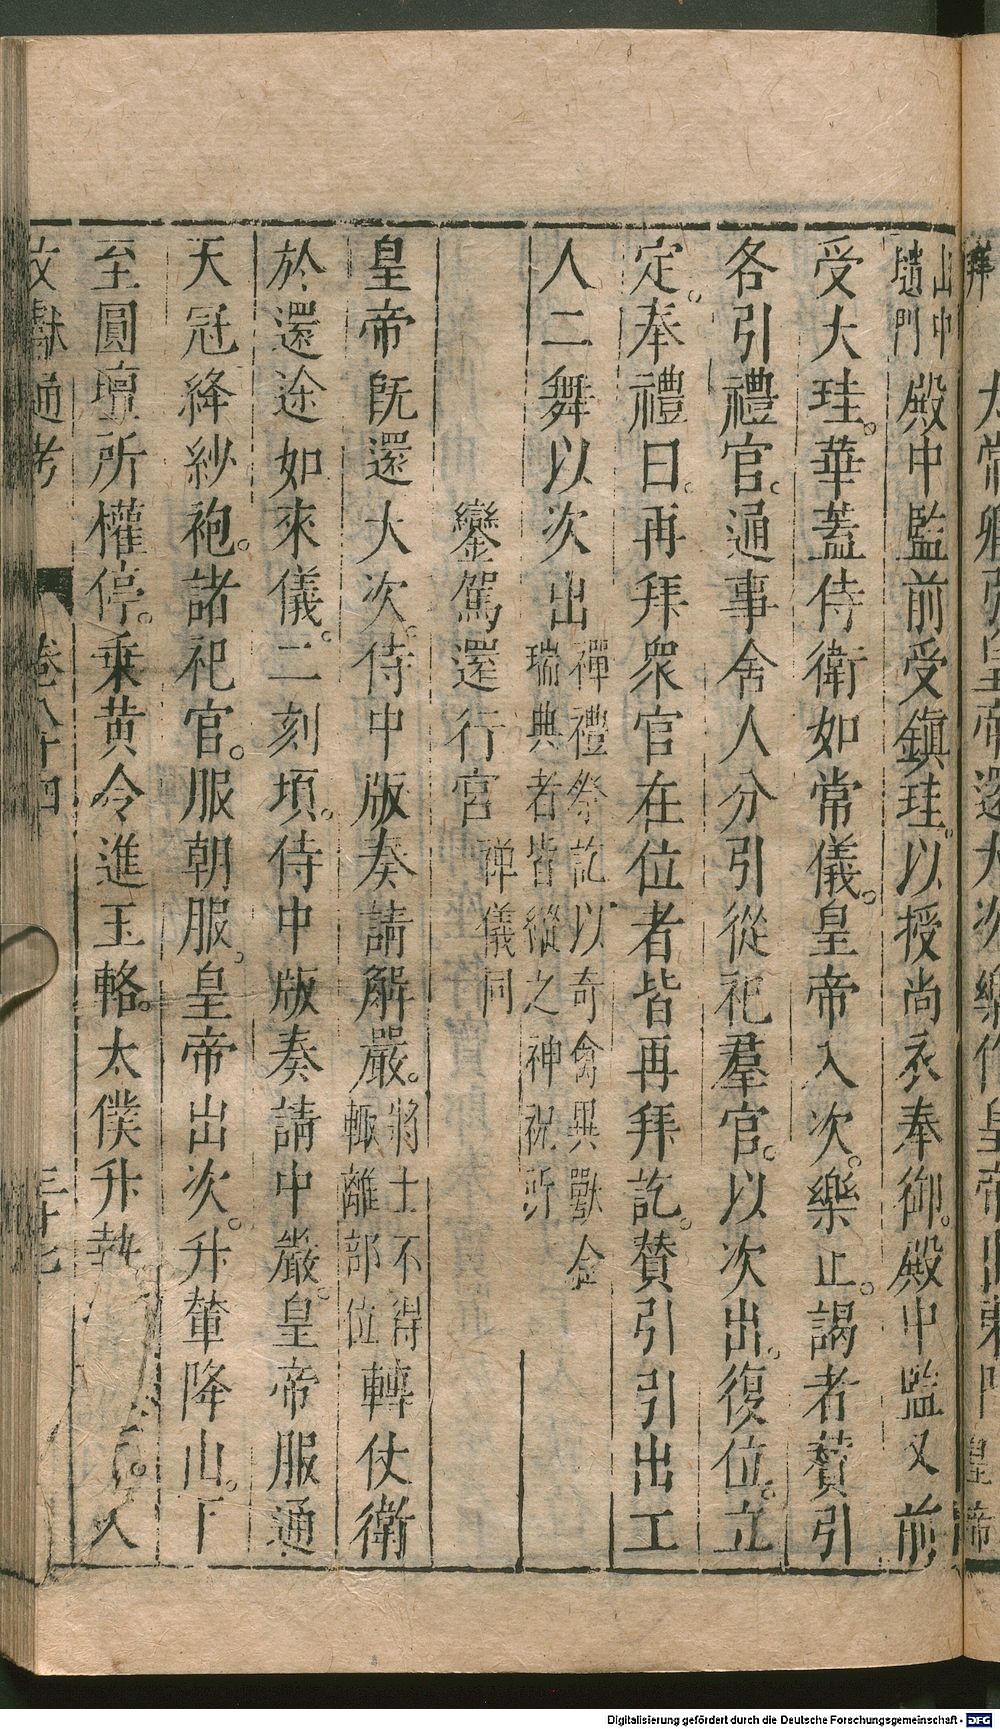 出中壝門殿中監前受鎮珪。以授尚衣奉御。殿中監又前
受大珪。華蓋侍衛如常儀。皇帝入次。樂止。謁者贊引
各引禮官。通事舍人分引從祀羣官。以次出。復位。立
定。奉禮曰。再拜衆官在位者皆再拜訖。贊引引出工
人二舞以次出禪禮祭訖以奇禽異獸合瑞典者皆縱之神祝所
鑾駕還行宮禅儀同
皇帝既還大次。侍中版奏請解嚴。將士不得輙離部位轉仗衛
於還途如來儀。二刻頃。侍中版奏請中嚴。皇帝服通
天冠絳紗袍。諸祀官。服朝服。皇帝出次。升輦降山。下
至圓壇所權停。乗黄令進玉輅。太僕升執
人
文獻通考 卷八十四 三十七
Digitalisierung gefördert durch die Deutsche Forschungsgemeinschaft - DFG